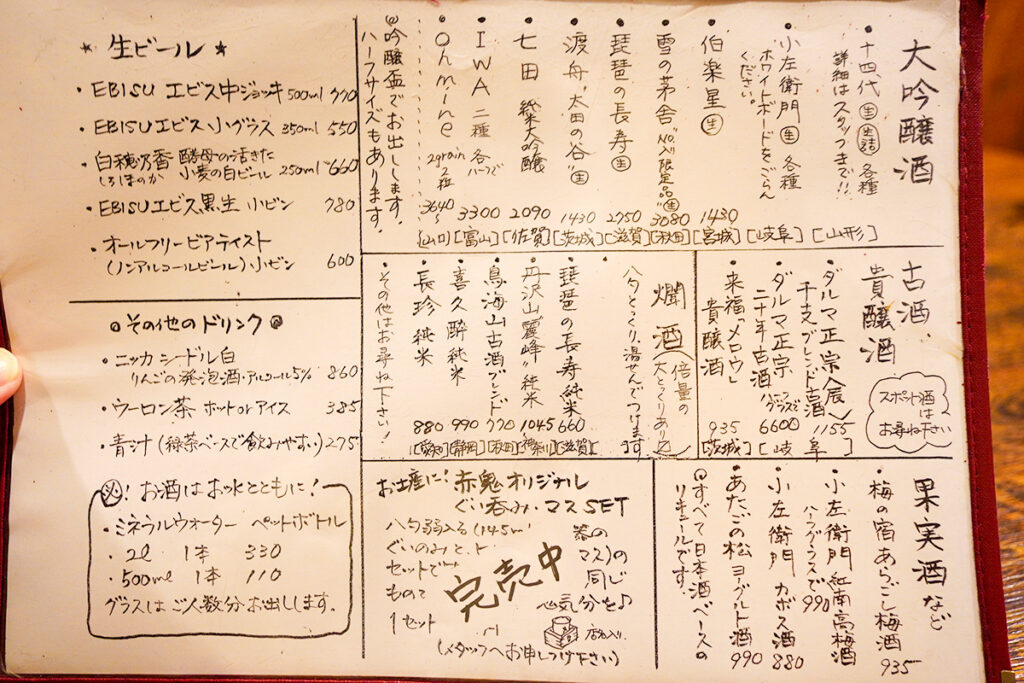 大吟醸酒
・十四代 生 生詰 各種
詳細はスタッフまで!!
[山形]
・小左衛門 生 各種
ホワイトボードをごらん
ください。
[岐阜]
・伯楽星 生
1430
[宮城]
・雪の茅舎
限定品 生
3080
[秋田]
・琵琶の長寿 生
2750
[滋賀]
・渡舟 "太田の谷" 生
1430
[茨城]
・七田 純米大吟醸
2090
[佐賀]
・IWA 二種 各ハーフで
3300
[富山]
・Ohmine 2grain 2粒
3640〜
[山口]
◎吟醸盃でお出しします。
ハーフサイズもあります。
古酒、
貴醸酒
・ダルマ正宗
干支ブレンド古酒
1155
・ダルマ正宗
二十年古酒 ハーフグラスで
6600
[岐阜]
・来福 "メロウ"
貴醸酒
935
[茨城]
スポット酒
は
お尋ね下さい
燗酒(倍量の
大とっくりあり〼)
八勺とっくり、湯せんでつけます。
・琵琶の長寿 純米 660
[滋賀]
・丹沢山"麗峰"純米 1045
[神奈川]
・鳥海山古酒ブレンド 770
[秋田]
・喜久酔 純米 990
[静岡]
・長珍 純米 880
[愛知]
・その他はお尋ね下さい!
果実酒など
・梅の宿あらごし梅酒 935
・小左衛門 紅南高梅酒
ハーフグラスで990
・小左衛門 カボス酒 880
・あたごの松 ヨーグルト酒 990
◎すべて日本酒ベースの
リキュールです。
★生ビール★
・EBISU エビス中ジョッキ 500ml 770
・EBISU エビス小グラス 350ml 550
・白穂乃香 酵母の活きた
しろほのか 小麦の白ビール 250ml 660
・EBISU エビス黒生 小ビン 780
・オールフリービアテイスト
(ノンアルコールビール)小ビン 600
◎その他のドリンク◎
・ニッカ シードル白
りんごの発泡酒・アルコール5% 860
・ウーロン茶 ホット or アイス 385
・青汁(緑茶ベースで飲みやすい) 275
必!お酒はお水とともに!
・ミネラルウォーター ペットボトル
・2l 1本 330
・500ml 1本 110
グラスはご人数分お出しします。
お土産に!赤鬼オリジナル
ぐい呑み・マスSET
八勺弱入る(145ml)
ぐいのみと、
セットで
もので
1セット
器の
マス)の
同じ
気分を♪
完売中
店名入り。
(スタッフへお申しつけ下さい)